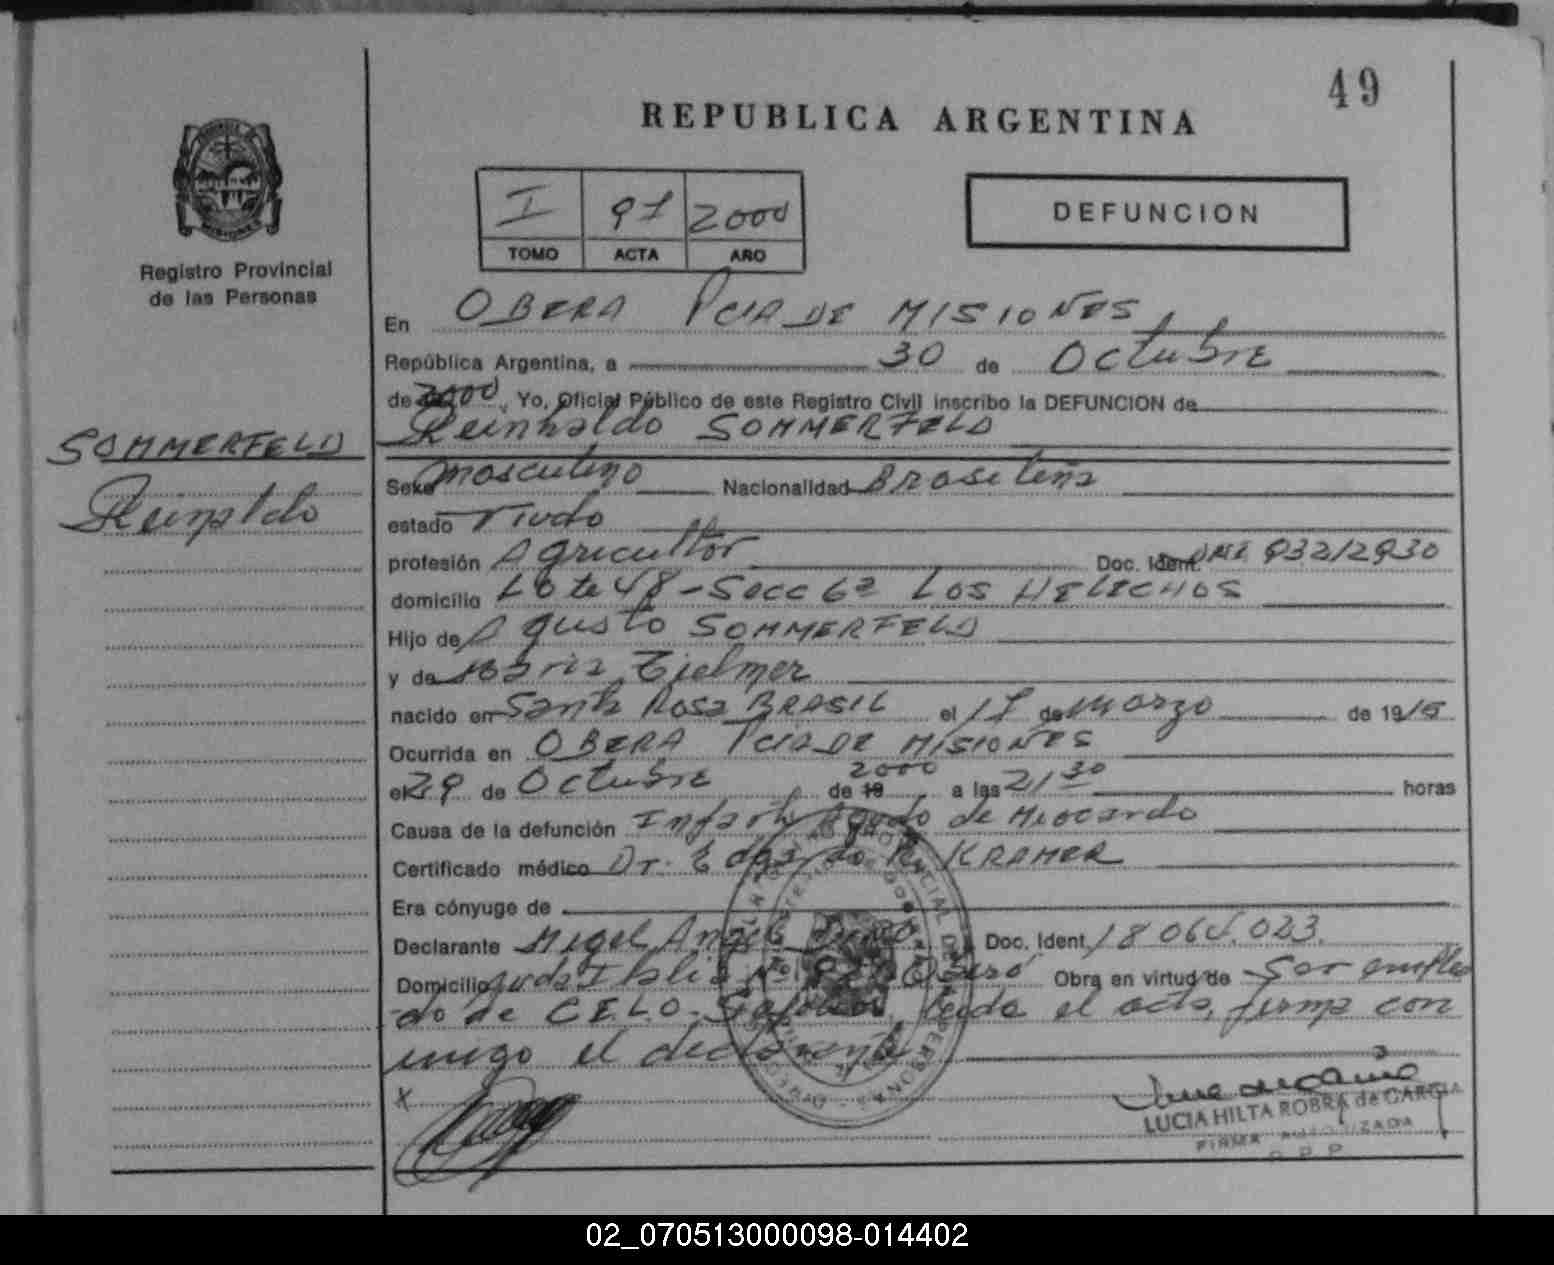 49
REPUBLICA ARGENTINA
I 91 2000
TOMO ACTA AÑO
DEFUNCION
MISIONES
Registro Provincial
de las Personas
En OBERA PCIA DE MISIONES,
República Argentina, a 30 de Octubre
de 2000, Yo, Oficial Público de este Registro Civil inscribo la DEFUNCION de
Reinhaldo SOMMERFELD
SOMMERFELD
Reinaldo
Sexo masculino Nacionalidad Brasileña
estado Viudo
profesión Agricultor Doc. Ident. DNI
domicilio Lote 48 - Secc 6ª LOS HELECHOS
Hijo de Agusto SOMMERFELD
y de Maria Tielmer
nacido en Santa Rosa BRASIL el 17 de Marzo de 1915
Ocurrida en OBERA PCIA DE MISIONES
el 29 de Octubre de 19 2000 a las 21 30 horas
Causa de la defunción Infarto Agudo de Miocardo
Certificado médico Dr. Edgardo R. KRAMER
Era cónyuge de
Declarante Migel Angel Doc. Ident. 18 064.023.
Domicilio Avda Italia Nº Obera Obra en virtud de Ser emplea
do de C.E.L.O. leida el acta, firma con
migo el declarante
X
LUCIA HILTA ROBRA de GARCIA
FIRMA AUTORIZADA
R P P
02_070513000098-014402